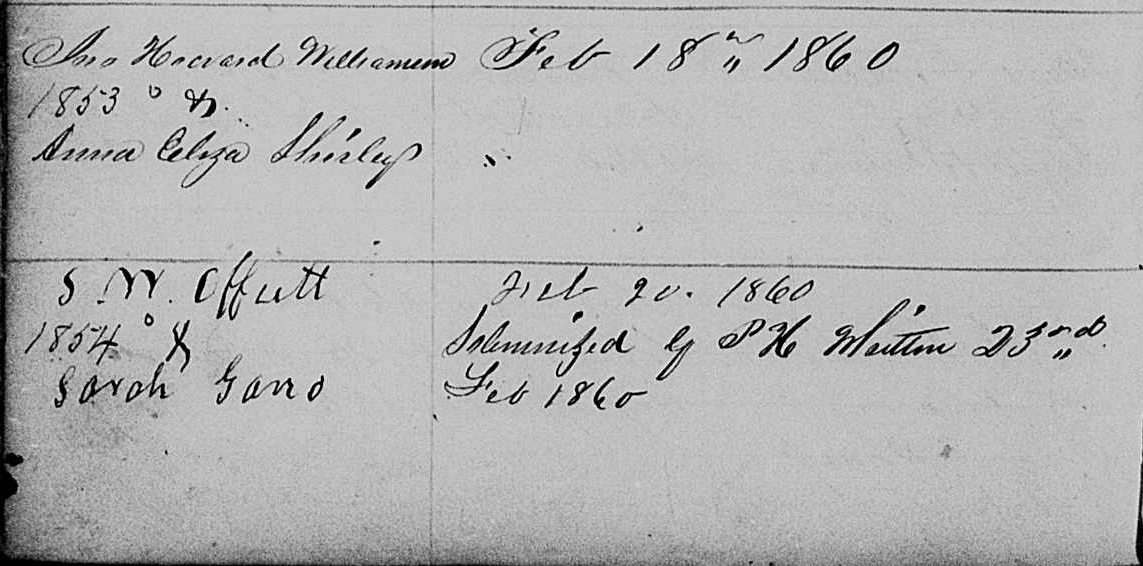 Jno Howard Williamson Feb 18th 1860
1853 o &
Anna Eliza Shirley "
S. W. Offutt Feb 20. 1860
1854 o & Solemnized by P H 23rd
Sarah Gano Feb 1860